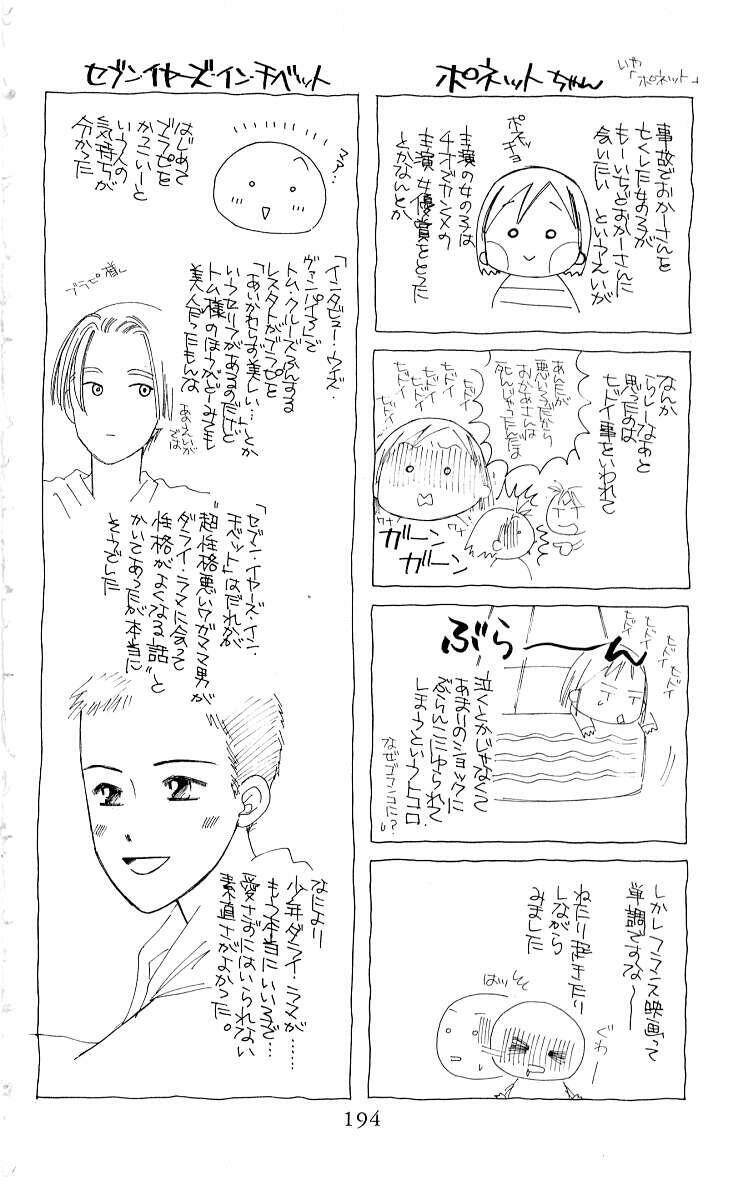 ポネットちゃん
いや
「ポネット」
事故でおかーさんを
亡くした女の子が
もーいちどおかーさんに
会いたい というえいが
ポネッ
チョ
主演の女の子は
4才でカンヌの
主演女優賞をとった
とかなんとか
なんか
らしーなあと
思ったのは
ヒドイ事をいわれて
あんたが
悪いこだから
おかあさんは
死んじゃったんだよ
ヒドイ
ヒドイ
ヒドイ
ヒドイ
ヒドイ
ワナ
ワナ
ガーン
ガーン
ヒドイ
ヒドイ
ヒドイ
ヒドイ
ぶらーん
泣くとかじゃなくて
あまりのショックに
ぶらんこにゆられて
しまうというトコロ.
なぜブランコに!?
しかしフランス映画って
単調ですな〜
ねたり起きたり
しながら
みました
ばっ
ぐわー
セブン・イヤーズ・イン・チベット
はじめて
ブラピを
かっこいーと
いう人の
気持ちが
分かった
「インタビュー・ウィズ・
ヴァンパイア」で
トム・クルーズふんする
レスタトがブラピを
「あいかわらず美しい…」とか
いうセリフがあるのだけど
トム様のほうがどーみても
美人だったもんな
あのえいが
では
ブラピ様
「セブン・イヤーズ・イン・
チベット」はだれかが
"超性格悪いワガママ男が
ダライ・ラマに会って
性格がよくなる話"と
かいてあったが本当に
そうでした
なにより
少年ダライ・ラマが……
もう本当にいい子で…
愛さずにはいられない
素直さがよかった。
194